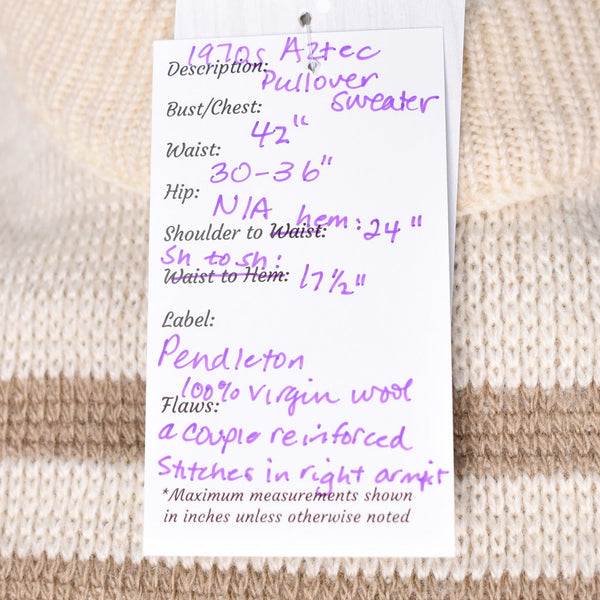 1970s Aztec
Description: Pullover
sweater
Bust/Chest: 42"
Waist: 30-36"
Hip: N/A
Shoulder to Waist: hem: 24"
Sh to sh:
Waist to Hem: 17 1/2"
Label:
Pendleton
100% virgin wool
Flaws:
a couple reinforced
stitches in right armpit
*Maximum measurements shown
in inches unless otherwise noted